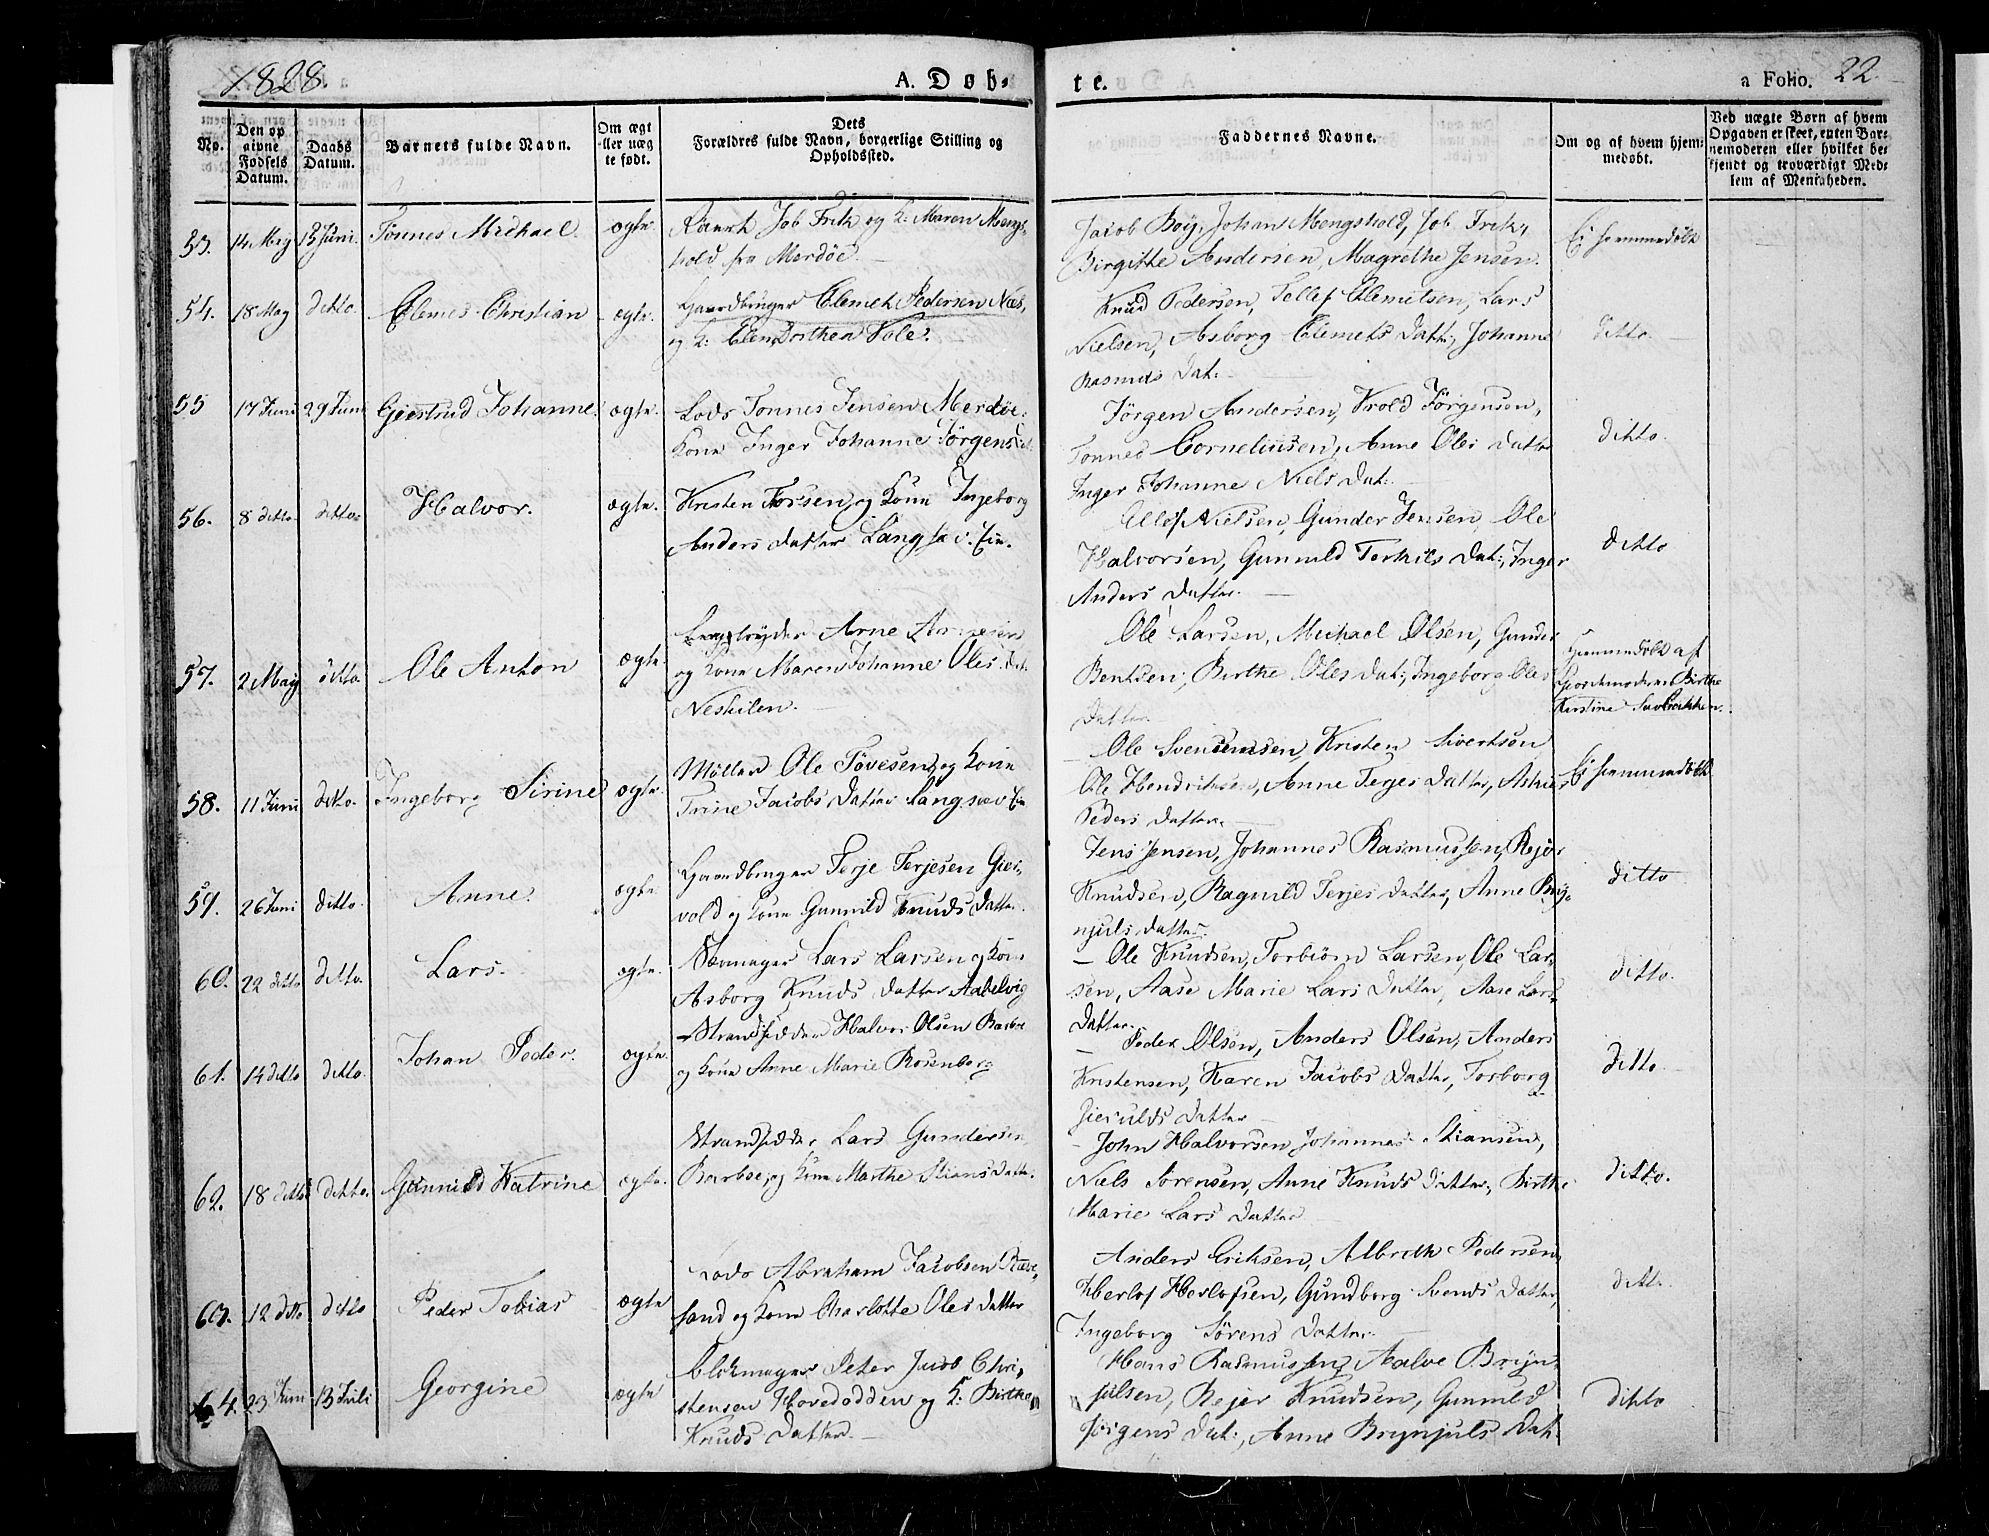 1828. A. Døb- te. a Folio. 22.
No.
Den op
givne
Fødsels
Datum.
Daabs
Datum.
Barnets fulde Navn.
Om ægt
eller uæg
te født.
Dets
Forældres fulde Navn, borgerlige Stilling og
Opholdssted.
Faddernes Navne.
Om og af hvem hjem-
medøbt.
Ved uægte Børn af hvem
Opgaven er skeet, enten Bar-
nemoderen eller hvilket be-
kjendt og troværdigt Med-
lem af Menigheden.
53. 14 Maj 15 Juni. Tønnes Michael. ægte. Job Frik og K: Maren Mengs-
hold fra Merdöe.
Jacob Böy, Johan Mengshold, Job Frik,
Birgithe Andersen, Magrethe Jensen.
Ej hjemmedöbt
54. 18 May ditto. Clemes Christian ægte. Gaardbruger Clemet Pedersen Næs,
og K: Elen Dorthea Vole.
Knud Pedersen, Tellef Clemetsen, Lars
Nielsen, Asborg Clemets Datt:, Johanne
Rasmus Dat:
ditto.
55 17 Juni 29 Juni Giertrud Johanne. ægte. Lods Tönnes Jensen Merdöe
Kone Inger Johanne Jörgens Dat.
Jörgen Andersen, Krold Jörgensen,
Tönnes Corneliusen, Anne Oles Datter
Inger Johanne Niels Dat.
ditto.
56. 8 ditto. ditto. Halvor. ægte. Kristen Torsen, og Kone Ingeborg
Anders Datter Langsæv. Eie.
Ellef Nielsen, Gunder Jensen, Ole
Halvorsen, Gunnild Torkils Dat:, Inger
Anders Datter.
ditto
57. 2 May ditto. Ole Anton ægte. Arne Arnesen
og Kone Maren Johanne Oles Dat.
Neskilen.
Ole Larsen, Michael Olsen, Gunder
Bentsen, Birthe Oles Dat:, Ingeborg Oles
Datter.
Hjemmedöbt af
Giordemoderen Birthe
Kirstine
58. 11 Juni ditto. Ingeborg Sirine ægte. Möller Ole Tovesen og Kone
Trine Jacobs Datter Langsæv Eie
Ole Svensen, Kristen Sivertsen
Ole Hendriksen, Anne Terjes Datter,
Peders Datter.
Ej hjemmedöbt
59. 26 Juni ditto. Anne. ægte. Gaardbruger Terje Terjesen Gier-
vold og Kone Gunnild Knuds Datter.
Jens Jensen, Johannes Rasmussen, Rejer
Knudsen, Ragnild Terjes Datter, Anne Bryn-
njuls Datter.
ditto
60. 22 ditto ditto. Lars. ægte. Lars Larsen og Kone
Asborg Knuds Datter Aabelvig
Ole Knudsen, Torbiörn Larsen, Ole Lar-
sen, Aase Marie Lars Datter, Aase Lars
Datter.
ditto.
61. 14 ditto ditto. Johan Peder. ægte. Strandsidder Halvor Olsen Barboe
og Kone Anne Marie Rosenberg
Peder Olsen, Anders Olsen, Anders
Kristensen, Karen Jacobs Datter, Torborg
Datter
ditto.
62. 18 ditto ditto. Gunnild Katrine ægte. Strandsidder Lars Gundersen
Barboe, og Kone Marthe Stians Datter.
John Halvorsen, Johannes Stiansen,
Niels Sörensen, Anne Knuds Datter, Birthe
Marie Lars Datter.
ditto.
63. 12 ditto ditto Peder Tobias ægte Lods Abraham Jacobsen Ræve-
sand og Kone Charlotte Oles Datter
Anders Eriksen, Albreth Pedersen,
Herlof Herlofsen, Gundborg Svends Datter,
Ingeborg Sörens Datter.
ditto.
64. 23 Juni 13 Juli Georgine ægte Blokmager Peter Jacob Chri-
stensen Hovedodden og K: Birthe
Knuds Datter.
Hans Rasmussen, Aalve Bryn-
julsen, Rejer Knudsen, Gunnild
Jörgens Dat:, Anne Brynjuls Dat.
ditto